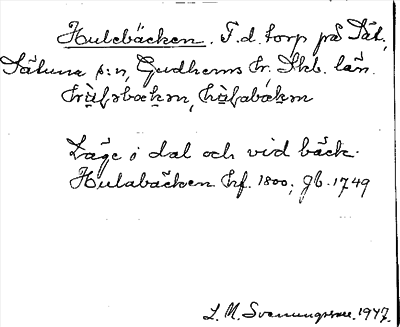 Hulebäcken. F.d. torp på Sät.,
Sätuna s:n, Gudhems hr. Skb. län.
Läge i dal och vid bäck.
Hulabäcken hf. 1800; Jb. 1749
L. M. Svenungsson. 1947.